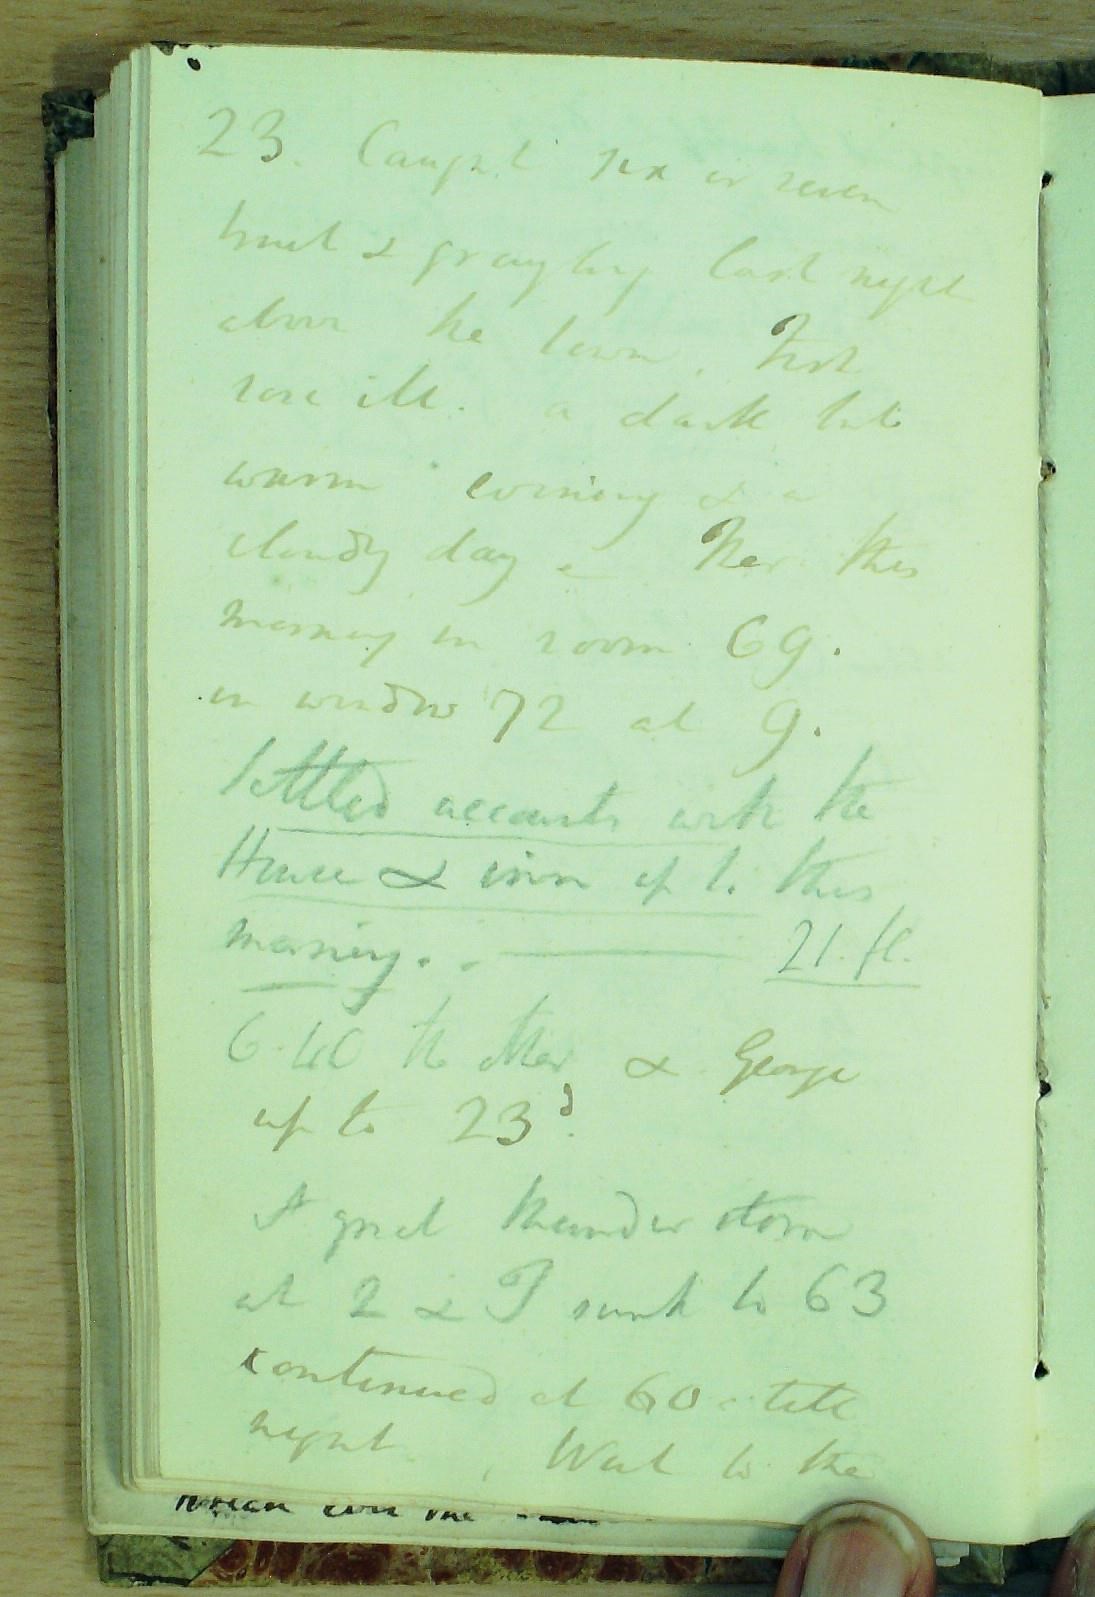 23. Caught six or seven
trout & grayling last night
above the town. Fish
rose ill. a dark but
warm evening & a
cloudy day. Ther this
morning in room 69.
in window 72 at 9.
Settled accounts with the
House & inn up to this
morning. — 21. fl.
6.40 to & George
up to 23d.
A great thunder storm
at 2 & T sunk to 63
continued at 60 till
night. Went to the